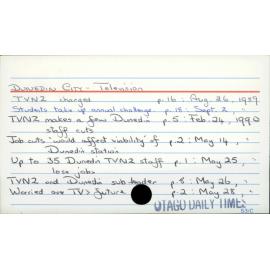 DUNEDIN CITY - Television
TVNZ changes p.16: Aug. 26, 1989
Students take up annual challenge. p.18: Sept. 2, "
TVNZ makes a few Dunedin p.5: Feb. 24, 1990
staff cuts
Job cuts 'would affect viability' of p.2: May 14, "
Dunedin station
Up to 35 Dunedin TVNZ staff p.1: May 25, "
lose jobs
TVNZ and Dunedin sub p.8: May 26, "
Worried over TV's future p.2: May 28, "
OTAGO DAILY TIMES